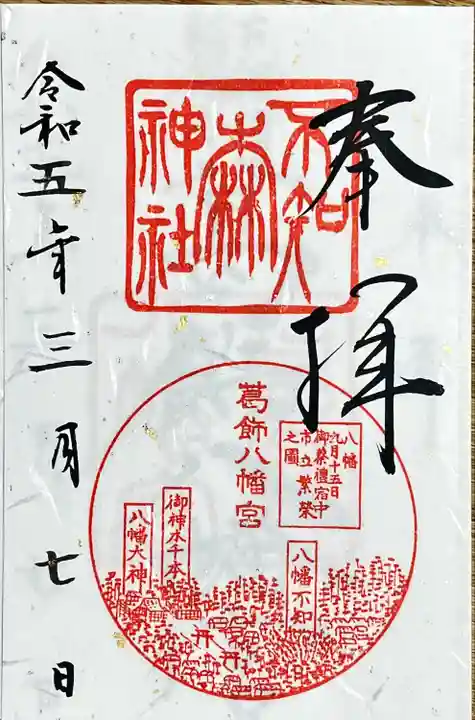 奉拝
不知
森
神社
葛飾八幡宮
八幡
九月十五日
御祭禮宿中
市立繁榮
之圖
八幡不知
御神木千本
八幡大神
令和五年三月七日